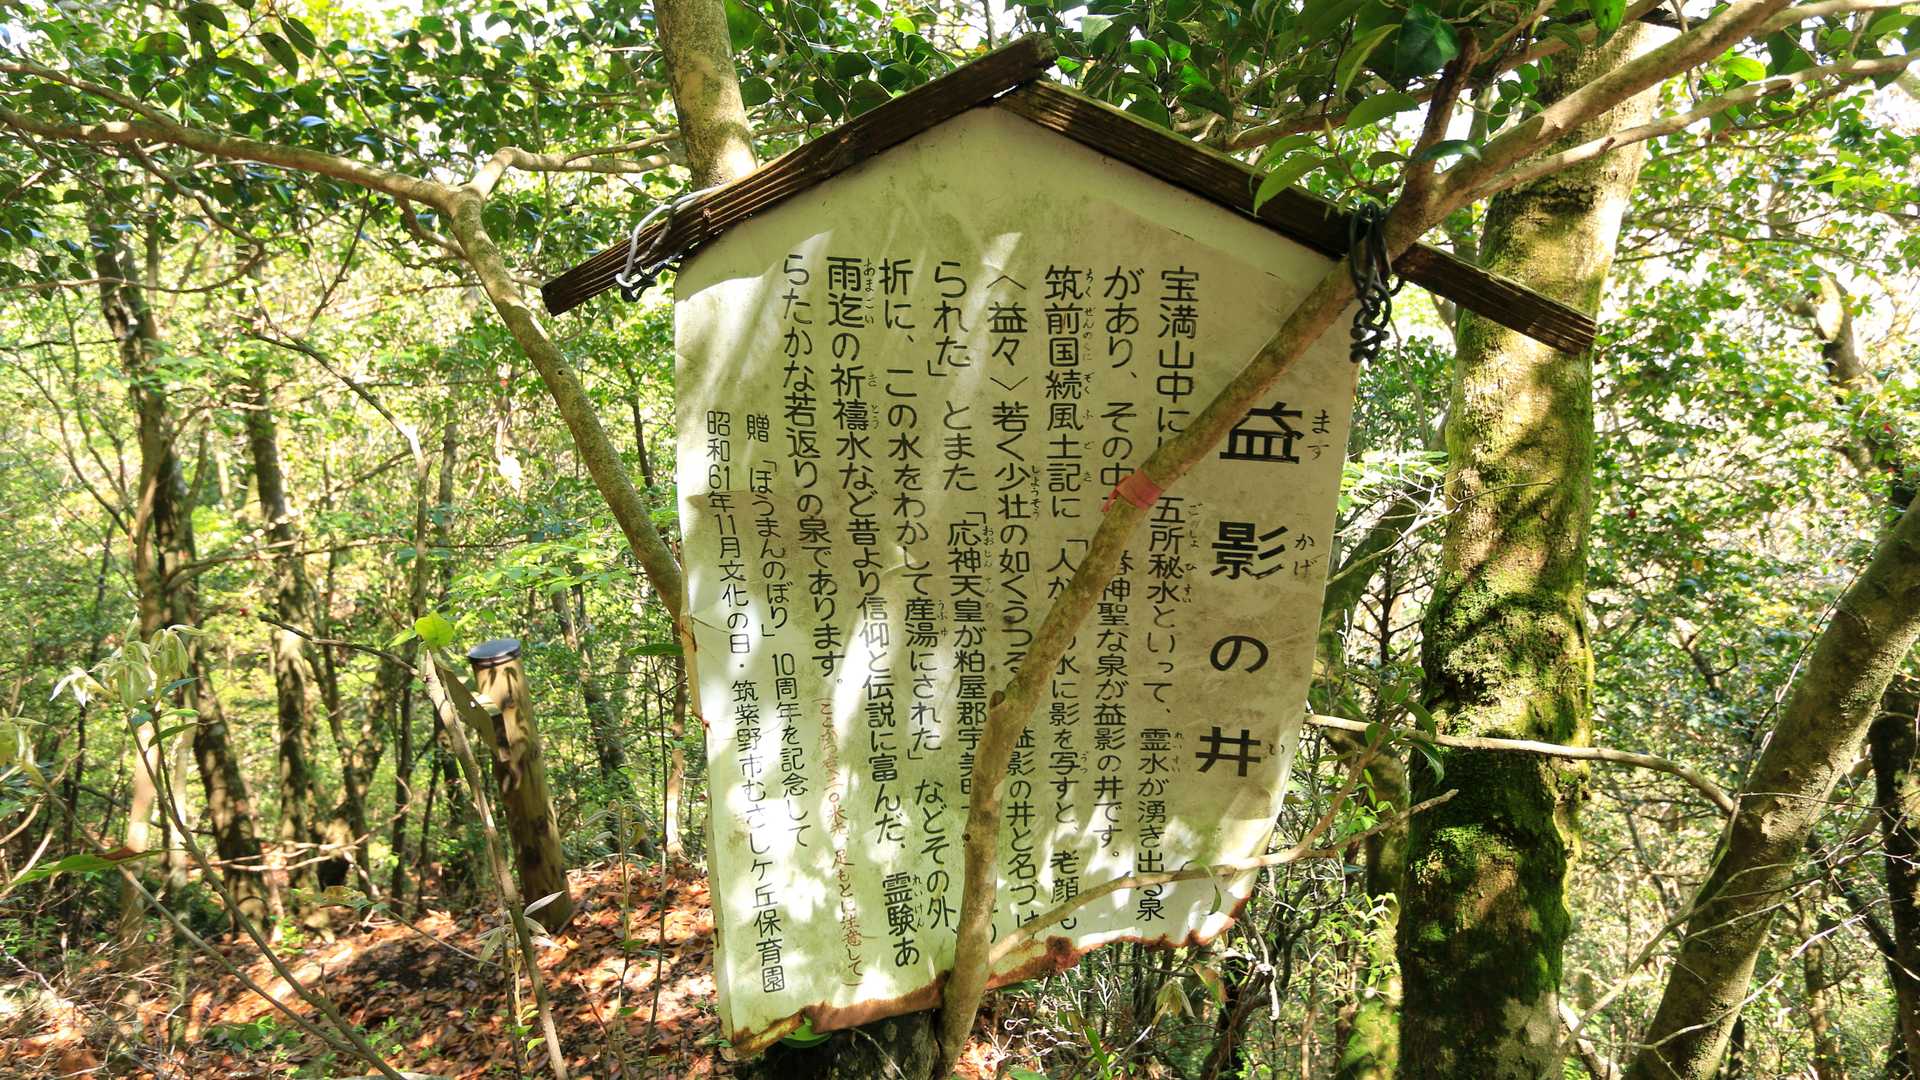 益影の井
ます かげ い
宝満山中に 五所秘水といって、霊水が湧き出る泉
があり、その中 神聖な泉が益影の井です。
筑前国続風土記に「人 水に影を写すと、老顔も
〈益々〉若く少壮の如くうつる 益影の井と名づけ
られた」とまた「応神天皇が粕屋郡宇美町
折に、この水をわかして産湯にされた」などその外、
雨迄の祈禱水など昔より信仰と伝説に富んだ、霊験あ
らたかな若返りの泉であります。
足もとに注意して)
贈「ほうまんのぼり」10周年を記念して
昭和61年11月文化の日・筑紫野市むさしケ丘保育園